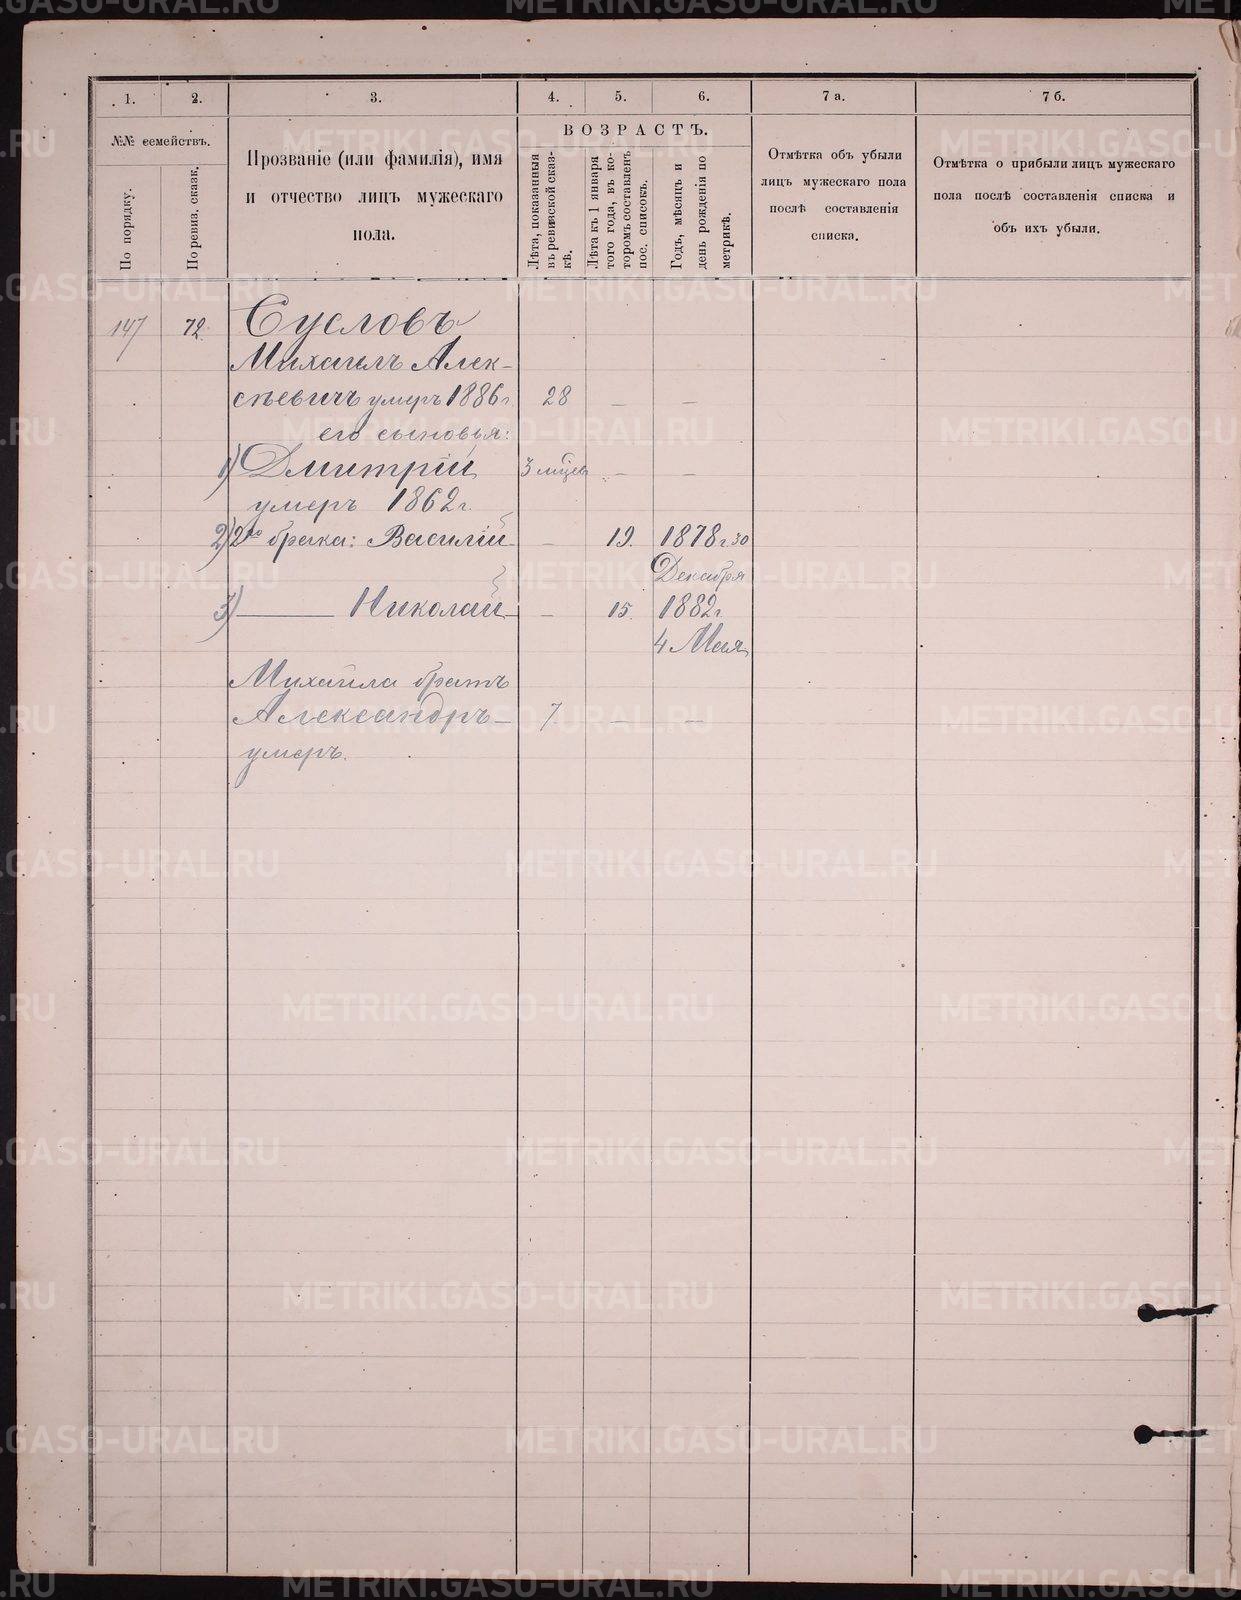 1.
2.
3.
4.
5.
6.
7 а.
7 б.
№№ семействъ.
По порядку.
По ревиз. сказк.
Прозваніе (или фамилія), имя
и отчество лицъ мужескаго
пола.
ВОЗРАСТЪ.
Лѣта, показанныя
въ ревизской сказ-
кѣ.
Лѣта къ 1 января
того года, въ ко-
торомъ составленъ
пос. списокъ.
Годъ, мѣсяцъ и
день рожденія по
метрикѣ.
Отмѣтка объ убыли
лицъ мужескаго пола
послѣ составленія
списка.
Отмѣтка о прибыли лицъ мужескаго
пола послѣ составленія списка и
объ ихъ убыли.
147 72 Сусловъ
Михаилъ Алек-
сѣевичъ умеръ 1886 г. 28 — —
его сыновья:
1) Дмитрій 3 мѣсяц — —
умеръ 1862 г.
2) 2го брака: Василій — 19. 1878 г. 30
Декабря
3) —— Николай — 15. 1882 г.
4 Мая
Михаила братъ
Александръ — 7. — —
умеръ.
METRIKI.GASO-URAL.RU